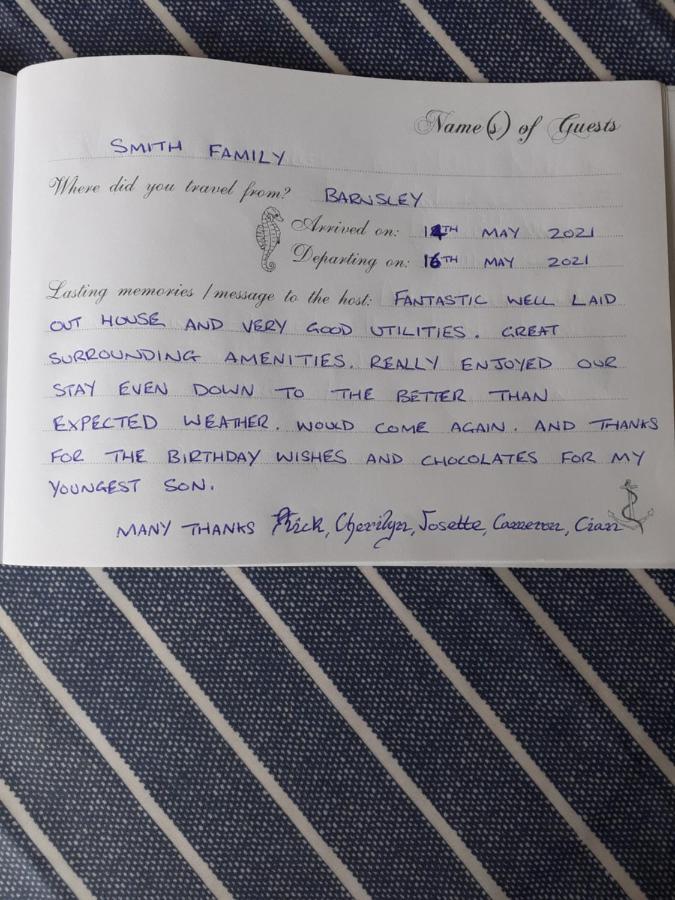 Name(s) of Guests
SMITH FAMILY
Where did you travel from? BARNSLEY
Arrived on: 14TH MAY 2021
Departing on: 16TH MAY 2021
Lasting memories / message to the host: FANTASTIC WELL LAID
OUT HOUSE AND VERY GOOD UTILITIES. GREAT
SURROUNDING AMENITIES. REALLY ENJOYED OUR
STAY EVEN DOWN TO THE BETTER THAN
EXPECTED WEATHER. WOULD COME AGAIN. AND THANKS
FOR THE BIRTHDAY WISHES AND CHOCOLATES FOR MY
YOUNGEST SON.
MANY THANKS Rick, Cherilyn, Josette, Cameron, Cian